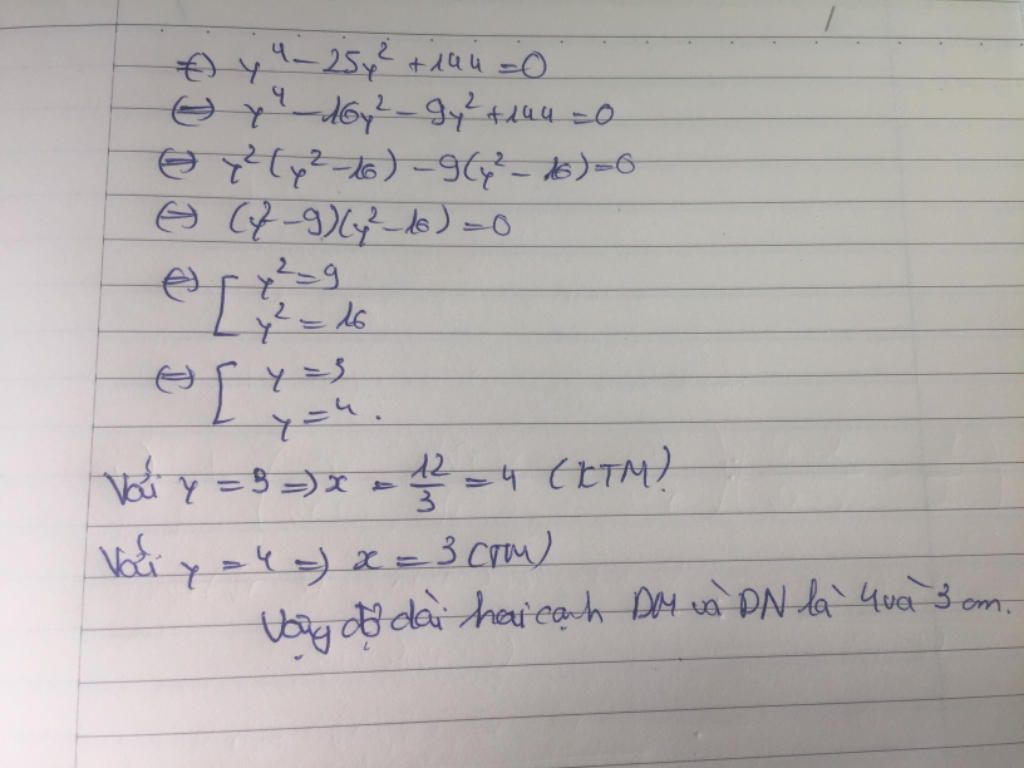 ⇔ y⁴ - 25y² + 144 = 0
⇔ y⁴ - 16y² - 9y² + 144 = 0
⇔ y²(y² - 16) - 9(y² - 16) = 0
⇔ (y² - 9)(y² - 16) = 0
⇔ [ y² = 9
y² = 16
⇔ [ y = 3
y = 4.
Với y = 3 => x = 12/3 = 4 (KTM)
Với y = 4 => x = 3 (TM)
Vậy độ dài hai cạnh DM và DN là 4 và 3 cm.